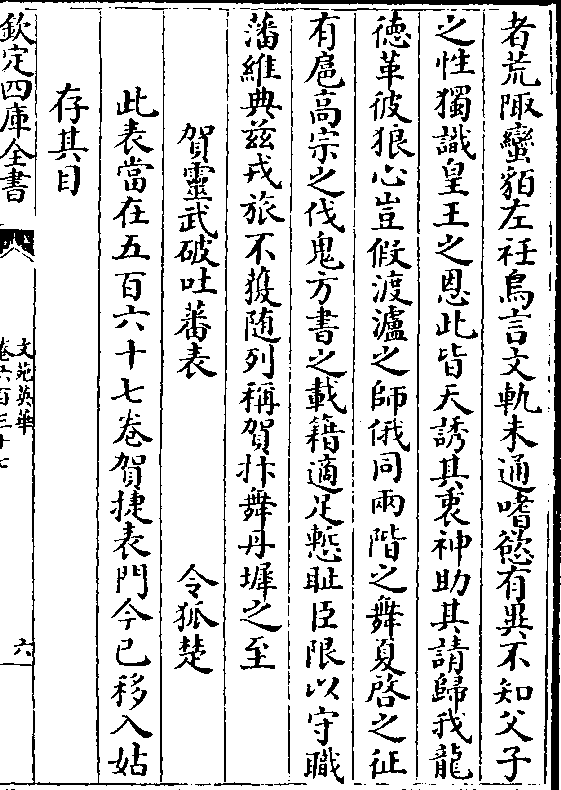 者荒陬蠻貊左衽鳥言文軌未通嗜慾有異不知父子
之性獨識皇王之恩此皆天誘其衷神助其請歸我龍
徳革彼狼心豈假渡瀘之師俄同兩階之舞夏啓之征
有扈髙宗之伐鬼方書之載籍適足慙耻臣限以守職
藩維典兹戎旅不獲随列稱賀抃舞丹墀之至
賀靈武破吐蕃表 令狐楚
此表當在五百六十七卷賀捷表門今已移入姑
存其目
欽定四庫全書
文苑英華
卷六百三十七
六